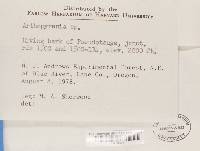 Distributed by the
FARLOW HERBARIUM OF HARVARD UNIVERSITY
Arthopyrenia sp.
Living bark of Pseudotsuga, junct.
rds 1502 and 1502-114, elev. 2000 ft.
H. J. Andrews Experimental Forest, N.E.
of Blue River, Lane Co., Oregon.
August 4, 1978.
leg: M. A. Sherwood
det: